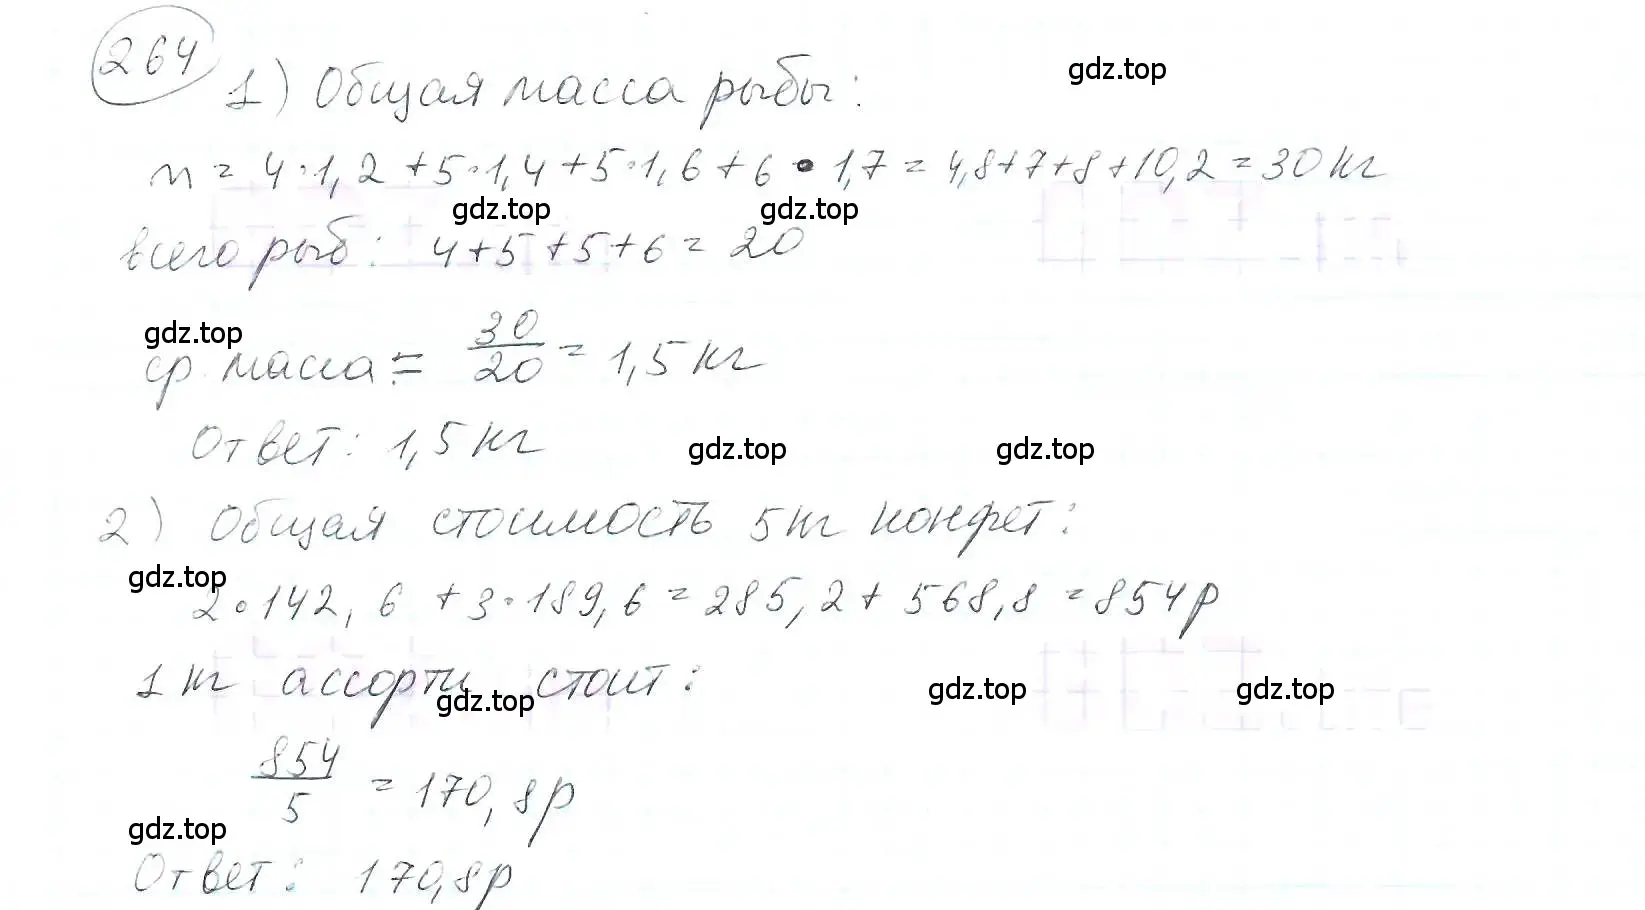 264
gdz.top
1) Общая масса рыбы:
m = 4·1,2 + 5·1,4 + 5·1,6 + 6·1,7 = 4,8+7+8+10,2 = 30 кг
gdz.top gdz.top
всего рыб: 4+5+5+6 = 20
gdz.top
ср. масса = 30/20 = 1,5 кг
Ответ: 1,5 кг
gdz.top gdz.top
2) Общая стоимость 5 кг конфет:
gdz.top
2·142,6 + 3·189,6 = 285,2 + 568,8 = 854 р
1 кг ассорти стоит:
gdz.top gdz.top gdz.top
854/5 = 170,8 р
gdz.top
Ответ: 170,8 р